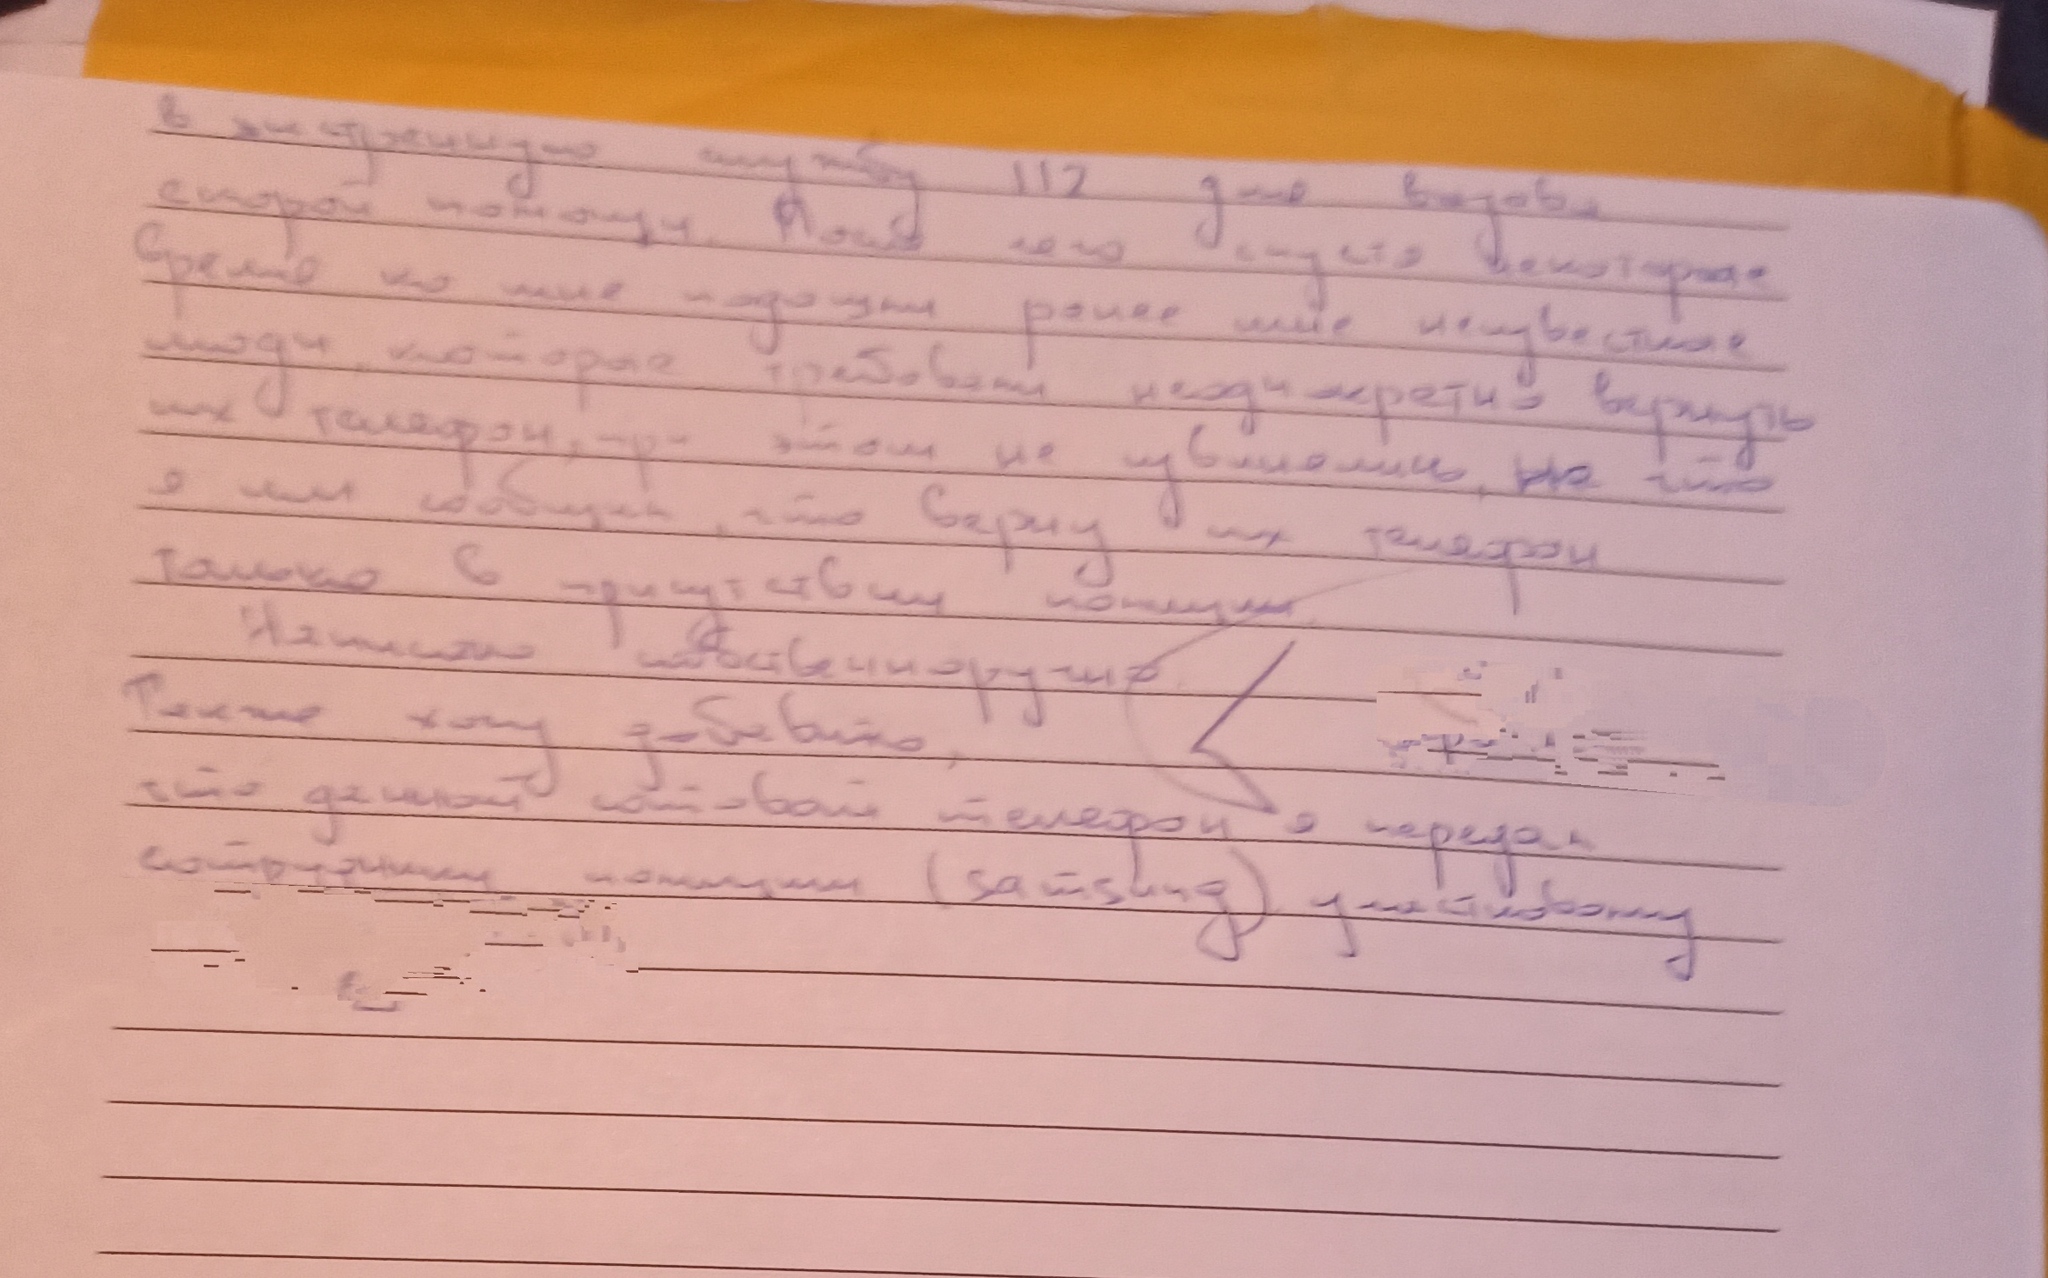 в экстренную службу 112 для вызова
скорой помощи. После чего спустя некоторое
время ко мне подошли ранее мне неизвестные
люди, которые требовали неоднократно вернуть
их телефон, при этом не извинялись, на что
я им сообщил, что верну их телефон
только в присутствии полиции.
Написано собственноручно.
Также хочу добавить,
что данный сотовый телефон я передал
сотруднику полиции (samsung) участковому